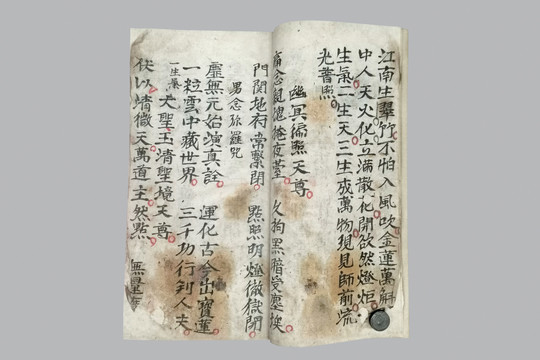 江南生翠竹不怕入風吹金蓮萬
中人天火化立滿散花開欲然燈炬
生氣二生天三生成萬物現見師前
光普照
幽冥徧照天尊
念 魂掩夜臺 火狗黑暗受塵埃
門閞地府帝繫閉 點照明燈徹獄開
男念弥羅咒
虛無元始演真詮 運化古今出寶蓮
一粒雪中藏世界 三千功行到人夫
一生
大聖玉清聖境天尊
伏以靖徹天萬道主然點 無量度